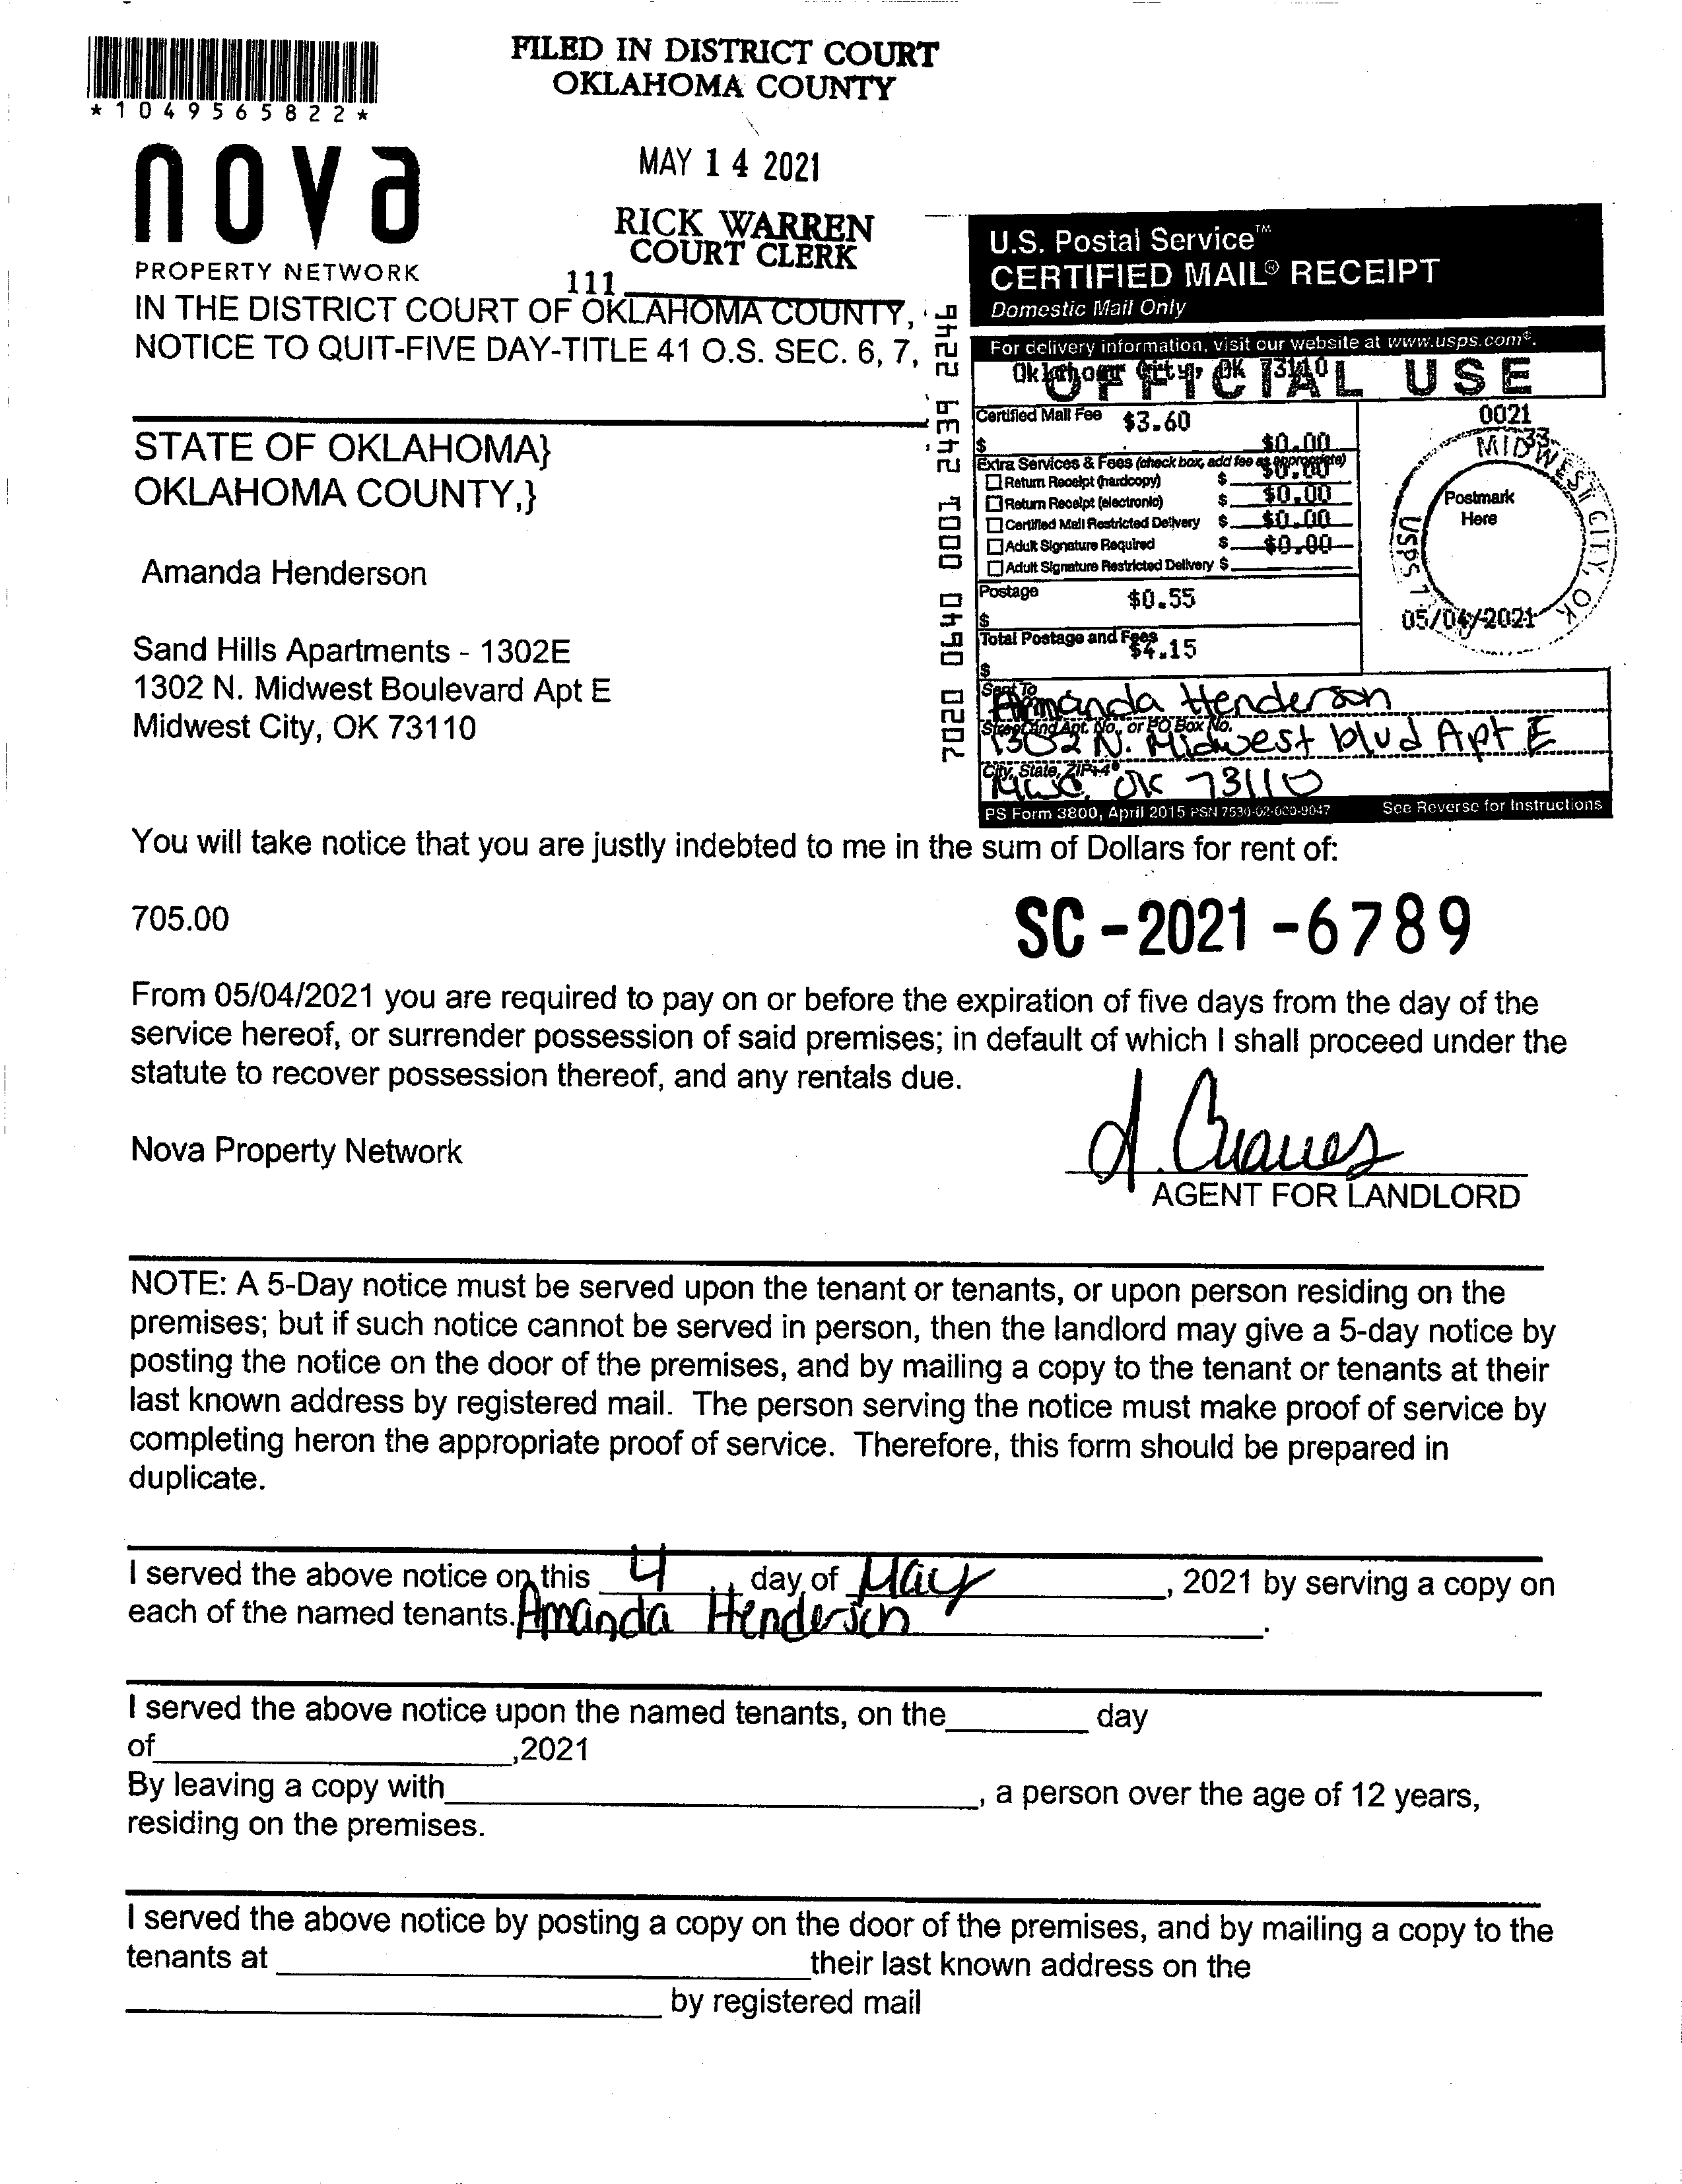 *1049565822*
FILED IN DISTRICT COURT
OKLAHOMA COUNTY
MAY 14 2021
RICK WARREN
COURT CLERK
111
nova
PROPERTY NETWORK
IN THE DISTRICT COURT OF OKLAHOMA COUNTY,
NOTICE TO QUIT-FIVE DAY-TITLE 41 O.S. SEC. 6, 7,
STATE OF OKLAHOMA}
OKLAHOMA COUNTY,}
Amanda Henderson
Sand Hills Apartments - 1302E
1302 N. Midwest Boulevard Apt E
Midwest City, OK 73110
7020 0640 0001 2439 2246
U.S. Postal Service™
CERTIFIED MAIL® RECEIPT
Domestic Mail Only
For delivery information, visit our website at www.usps.com®.
Oklahoma City, OK 73110
OFFICIAL USE
Certified Mail Fee $3.60
$
$0.00
Extra Services & Fees (check box, add fee as appropriate)
$0.00
Return Receipt (hardcopy) $
Return Receipt (electronic) $ $0.00
Certified Mail Restricted Delivery $ $0.00
Adult Signature Required $ $0.00
Adult Signature Restricted Delivery $
Postage $0.55
$
Total Postage and Fees $4.15
$
0021
33
MIDWEST CITY, OK
USPS
Postmark
Here
05/04/2021
Sent To
Amanda Henderson
Street and Apt. No., or PO Box No.
1302 N. Midwest blvd Apt E
City, State, ZIP+4®
MWC, OK 73110
PS Form 3800, April 2015 PSN 7530-02-000-9047 See Reverse for Instructions
You will take notice that you are justly indebted to me in the sum of Dollars for rent of:
705.00
SC-2021-6789
From 05/04/2021 you are required to pay on or before the expiration of five days from the day of the
service hereof, or surrender possession of said premises; in default of which I shall proceed under the
statute to recover possession thereof, and any rentals due.
Nova Property Network
AGENT FOR LANDLORD
NOTE: A 5-Day notice must be served upon the tenant or tenants, or upon person residing on the
premises; but if such notice cannot be served in person, then the landlord may give a 5-day notice by
posting the notice on the door of the premises, and by mailing a copy to the tenant or tenants at their
last known address by registered mail. The person serving the notice must make proof of service by
completing heron the appropriate proof of service. Therefore, this form should be prepared in
duplicate.
I served the above notice on this 4 day of May, 2021 by serving a copy on
each of the named tenants. Amanda Henderson.
I served the above notice upon the named tenants, on the________ day
of____________________,2021
By leaving a copy with______________________________, a person over the age of 12 years,
residing on the premises.
I served the above notice by posting a copy on the door of the premises, and by mailing a copy to the
tenants at ______________________________their last known address on the
______________________________ by registered mail